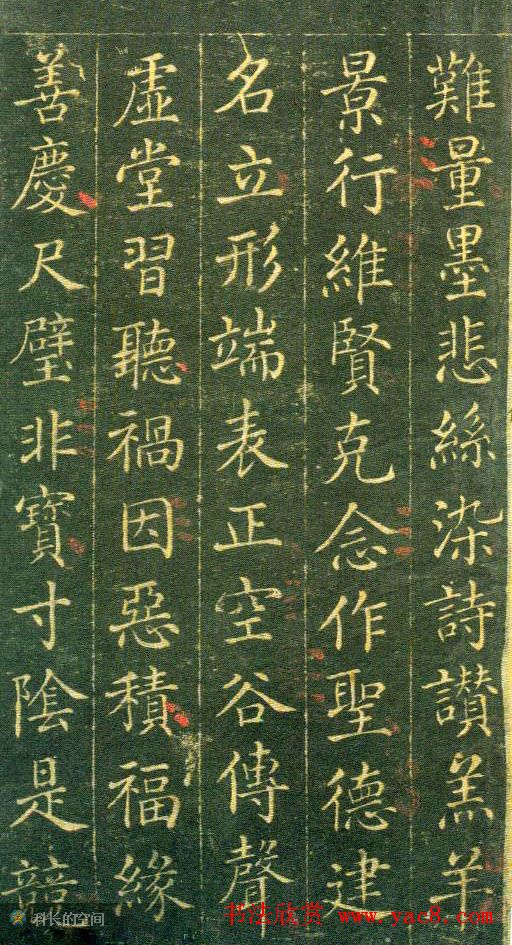 難量墨悲絲染詩讚羔羊
景行維賢克念作聖德建
名立形端表正空谷傳聲
虛堂習聽禍因惡積福緣
善慶尺璧非寶寸陰是競
科长的空间
书法欣赏 www.yac8.com